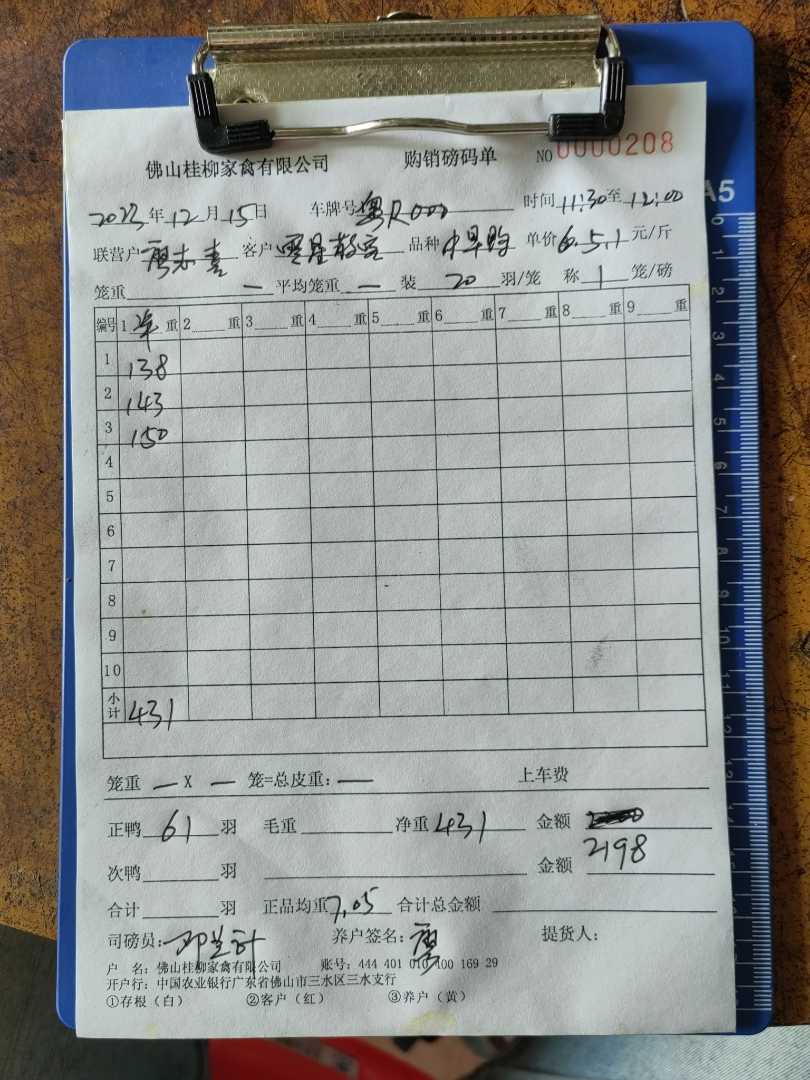 佛山桂柳家禽有限公司 购销磅码单 NO 0000208
A5
2023年12月15日 车牌号粤R000 时间11:30至12:00
联营户廖志喜 客户 品种中旱鸭 单价5.1元/斤
笼重 — 平均笼重 — 装 20 羽/笼 称 1 笼/磅
编号 1净重 2 重 3 重 4 重 5 重 6 重 7 重 8 重 9 重
1 138
2 143
3 150
4
5
6
7
8
9
10
小计 431
笼重 — X — 笼=总皮重: — 上车费
正鸭 61 羽 毛重 净重 431 金额
2198
次鸭 羽 金额
合计 羽 正品均重 7.05 合计总金额
司磅员: 养户签名: 廖 提货人:
户 名: 佛山桂柳家禽有限公司 账号: 444 401 010 400 169 29
开户行: 中国农业银行广东省佛山市三水区三水支行
①存根(白) ②客户(红) ③养户(黄)
0 1 2 3 4 5 6 7 8 9 10 11 12 13 14